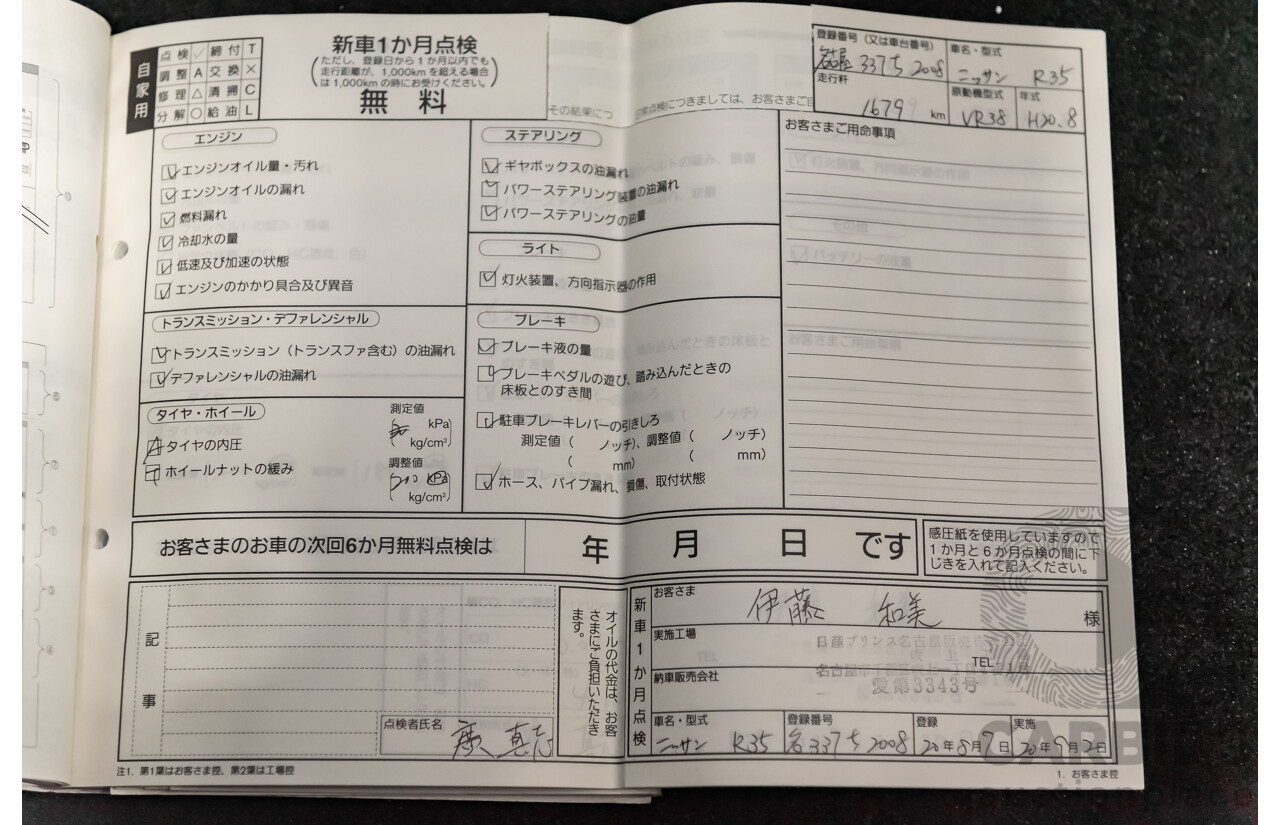 自家用
点検 ✓ 締付 T
調整 A 交換 ×
修理 △ 清掃 C
分解 ○ 給油 L
新車1か月点検
(ただし、登録日から1か月以内でも
走行距離が、1,000kmを超える場合
は1,000kmの時にお受けください。)
無料
その結果につ
日常点検につきましては、お客さまご自
登録番号(又は車台番号)
名古屋 337ち2008
車名・型式
ニッサン R35
走行粁
1679 km
原動機型式
VR38
年式
H20.8
エンジン
エンジンオイル量・汚れ
エンジンオイルの漏れ
燃料漏れ
冷却水の量
低速及び加速の状態
エンジンのかかり具合及び異音
トランスミッション・デファレンシャル
トランスミッション(トランスファ含む)の油漏れ
デファレンシャルの油漏れ
タイヤ・ホイール
タイヤの内圧
ホイールナットの緩み
測定値
kPa
kg/cm²
調整値
kPa
kg/cm²
ステアリング
ギヤボックスの油漏れ
パワーステアリング装置の油漏れ
パワーステアリングの油量
ライト
灯火装置、方向指示器の作用
ブレーキ
ブレーキ液の量
ブレーキペダルの遊び、踏み込んだときの
床板とのすき間
駐車ブレーキレバーの引きしろ
測定値( ノッチ)、調整値( ノッチ)
( mm) ( mm)
ホース、パイプ漏れ、損傷、取付状態
お客さまご用命事項
お客さまのお車の次回6か月無料点検は 年 月 日です
感圧紙を使用していますので
1か月と6か月点検の間に下
じきを入れて記入ください。
記事
点検者氏名
オイルの代金は、お客
さまにご負担いただき
ます。
新車1か月点検
お客さま
伊藤 和美 様
実施工場
日産プリンス名古屋販売
TEL
納車販売会社
愛第3343号
車名・型式
ニッサン R35
登録番号
名337ち2008
登録
20年8月7日
実施
20年9月2日
注1. 第1葉はお客さま控、第2葉は工場控
1. お客さま控